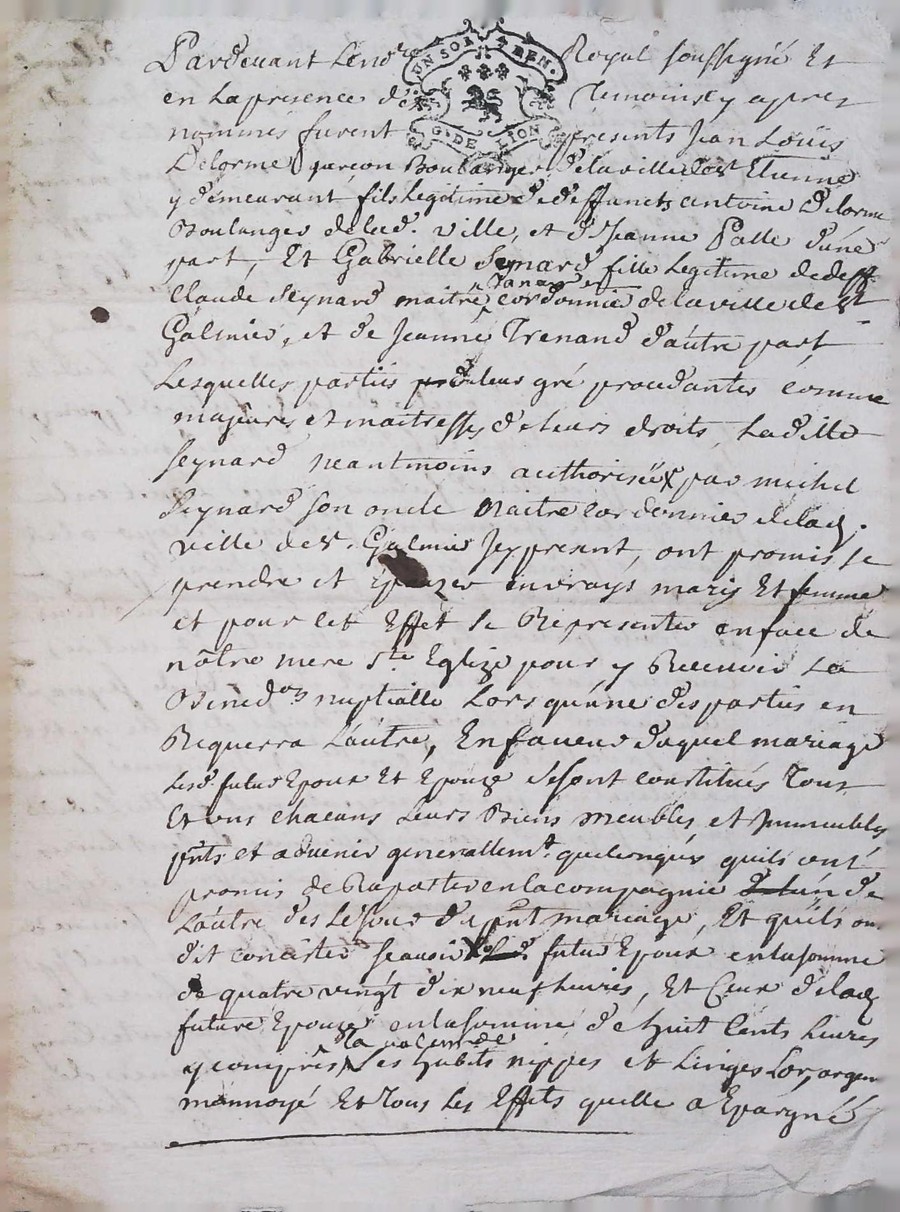 UN SOL 4 DEN.
G. DE LION
Pardevant Le no.re Royal soussigné Et
en La presence des Temoins cy apres
nommés furent presents Jean Louïs
Delorme garçon Boulanger de la ville de St Etienne
y demeurant fils Legitime de deffuncts antoine Delorme
Boulanger de lad. ville, et de Jeanne Palle d'une
part, Et Gabrielle Seynard fille Legitime de deff
Claude Seynard maitre cordonnier de la ville de St
Galmier, et de Jeanne Trenand d'autre part
Lesquelles parties de leur gré procedantes comme
majeures et maitresses de leurs droits, Laditte
Seynard neantmoins authorisée par michel
Seynard son oncle Maitre Cordonnier de lad.
ville de St. Galmier Jcy present, ont promis se
prendre et Epouzer en vrays marys Et femme
et pour cet Effet se Representer en face de
nôtre mere Ste Eglize pour y Recevoir La
Bened.on nuptialle Lors qu'une des parties en
Requerra L'autre, En faveur duquel mariage
Lesd. futur Epoux Et Epouze se sont constitués Tous
Et uns chacuns Leurs Biens meubles et Jmmeubles
pnts et advenir generallemt. quelconques quils ont
promis de Raporter en la compagnie de
L'autre des Le jour du pnt mariage, Et quils on
dit concister scavoir futur Epoux en la somme
de quatre vingt dix neuf livres, Et Ceux de lad.
future Epouze en la somme de huit Cents Livres
y comprîs la valeur de Ses habits nippes et Linges Lor, argen
monnoyé Et Tous Les Effets quelle a Epargné